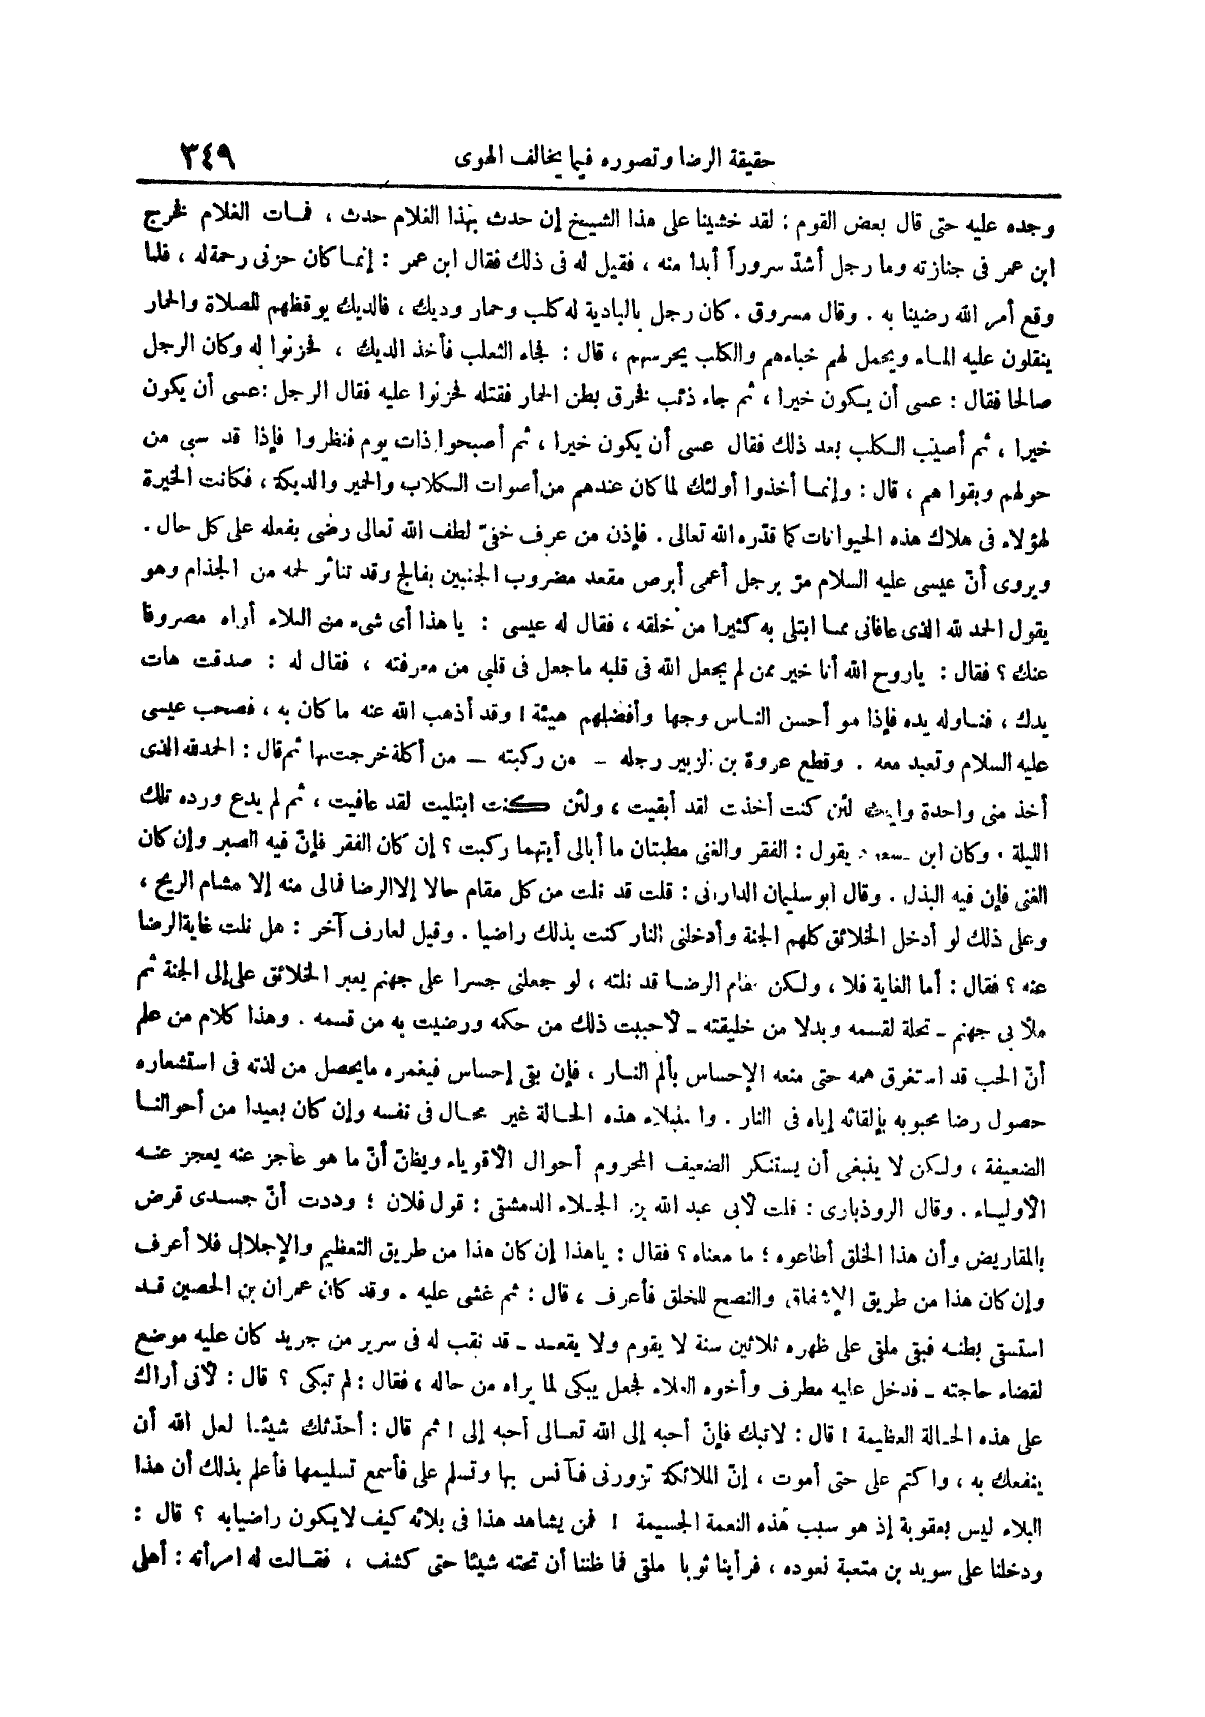 حقيقة الرضا وتصوره فيما يخالف الهوى ٣٤٩
وجده عليه حتى قال بعض القوم : لقد خشينا على هذا الشيخ إن حدث بهذا الغلام حدث ، فمات الغلام فخرج
ابن عمر فى جنازته وما رجل أشدّ سروراً أبدا منه ، فقيل له فى ذلك فقال ابن عمر : إنما كان حزنى رحمة له ، فلما
وقع أمر الله رضينا به . وقال مسروق . كان رجل بالبادية له كلب وحمار وديك ، فالديك يوقظهم للصلاة والحمار
ينقلون عليه الماء ويحمل لهم خباءهم والكلب يحرسهم ، قال : فجاء الثعلب فأخذ الديك ، فحزنوا له وكان الرجل
صالحا فقال : عسى أن يكون خيرا ، ثم جاء ذئب فخرق بطن الحمار فقتله فحزنوا عليه فقال الرجل : عسى أن يكون
خيرا ، ثم أصيب الكلب بعد ذلك فقال عسى أن يكون خيرا ، ثم أصبحوا ذات يوم فنظروا فإذا قد سبى من
حولهم وبقوا هم ، قال : وإنما أخذوا أولئك لما كان عندهم من أصوات الكلاب والحمير والديكة ، فكانت الخيرة
لهؤلاء فى هلاك هذه الحيوانات كما قدّره الله تعالى . فإذن من عرف خفىّ لطف الله تعالى رضى بفعله على كل حال .
ويروى أنّ عيسى عليه السلام مرّ برجل أعمى أبرص مقعد مضروب الجنبين بفالج وقد تناثر لحمه من الجذام وهو
يقول الحمد لله الذى عافانى مما ابتلى به كثيرا من خلقه ، فقال له عيسى : يا هذا أى شىء من البلاء أراه مصروفا
عنك ؟ فقال : ياروح الله أنا خير ممن لم يجعل الله فى قلبه ما جعل فى قلبى من معرفته ، فقال له : صدقت هات
يدك ، فناوله يده فإذا هو أحسن الناس وجها وأفضلهم هيئة ! وقد أذهب الله عنه ما كان به ، فصحب عيسى
عليه السلام وتعبد معه . وقطع عروة بن الزبير رجله ــ من ركبته ــ من أكلة خرجت بها ثم قال : الحمدلله الذى
أخذ منى واحدة وايمك لئن كنت أخذت لقد أبقيت ، ولئن كنت ابتليت لقد عافيت ، ثم لم يدع ورده تلك
الليلة . وكان ابن مسعود يقول : الفقر والغنى مطيتان ما أبالى أيتهما ركبت ؟ إن كان الفقر فإنّ فيه الصبر وإن كان
الغنى فإن فيه البذل . وقال أبو سليمان الدارانى : قلت قد نلت من كل مقام حالا إلا الرضا فمالى منه إلا مشام الريح ،
وعلى ذلك لو أدخل الخلائق كلهم الجنة وأدخلنى النار كنت بذلك راضيا . وقيل لعارف آخر : هل نلت غاية الرضا
عنه ؟ فقال : أما الغاية فلا ، ولكن مقام الرضا قد نلته ، لو جعلنى جسرا على جهنم يعبر الخلائق على إلى الجنة ثم
ملأ بى جهنم ــ تحلة لقسمه وبدلا من خليقته ــ لأحببت ذلك من حكمه ورضيت به من قسمه . وهذا كلام من علم
أنّ الحب قد استغرق همه حتى منعه الإحساس بألم النار ، فإن بقى إحساس فيغمره مايحصل من لذته فى استشعاره
حصول رضا محبوبه بإلقائه إياه فى النار . واستيلاء هذه الحالة غير محال فى نفسه وإن كان بعيدا من أحوالنا
الضعيفة ، ولكن لا ينبغى أن يستنكر الضعيف المحروم أحوال الأقوياء ويظنّ أنّ ما هو عاجز عنه يعجز عنه
الأولياء . وقال الروذبارى : قلت لأبى عبد الله بن الجلاء الدمشقى : قول فلان ؛ وددت أنّ جسدى قرض
بالمقاريض وأن هذا الخلق أطاعوه ؛ ما معناه ؟ فقال : ياهذا إن كان هذا من طريق التعظيم والإجلال فلا أعرف
وإن كان هذا من طريق الإشفاق والنصح للخلق فأعرف ، قال : ثم غشى عليه . وقد كان عمران بن الحصين قد
استسقى بطنه فبقى ملقى على ظهره ثلاثين سنة لا يقوم ولا يقعد ــ قد نقب له فى سرير من جريد كان عليه موضع
لقضاء حاجته ــ فدخل عليه مطرف وأخوه العلاء فجعل يبكى لما يراه من حاله ، فقال : لم تبكى ؟ قال : لأنى أراك
على هذه الحالة العظيمة ! قال : لاتبك فإنّ أحبه إلى الله تعالى أحبه إلى ! ثم قال : أحدّثك شيئا لعل الله أن
ينفعك به ، واكتم على حتى أموت ، إنّ الملائكة تزورنى فآنس بها وتسلم على فأسمع تسليمها فأعلم بذلك أن هذا
البلاء ليس بعقوبة إذ هو سبب هذه النعمة الجسيمة ! فمن يشاهد هذا فى بلائه كيف لايكون راضيابه ؟ قال :
ودخلنا على سويد بن متعبة نعوده ، فرأينا ثوبا ملقى فما ظننا أن تحته شيئا حتى كشف ، فقالت له امرأته : أهلى